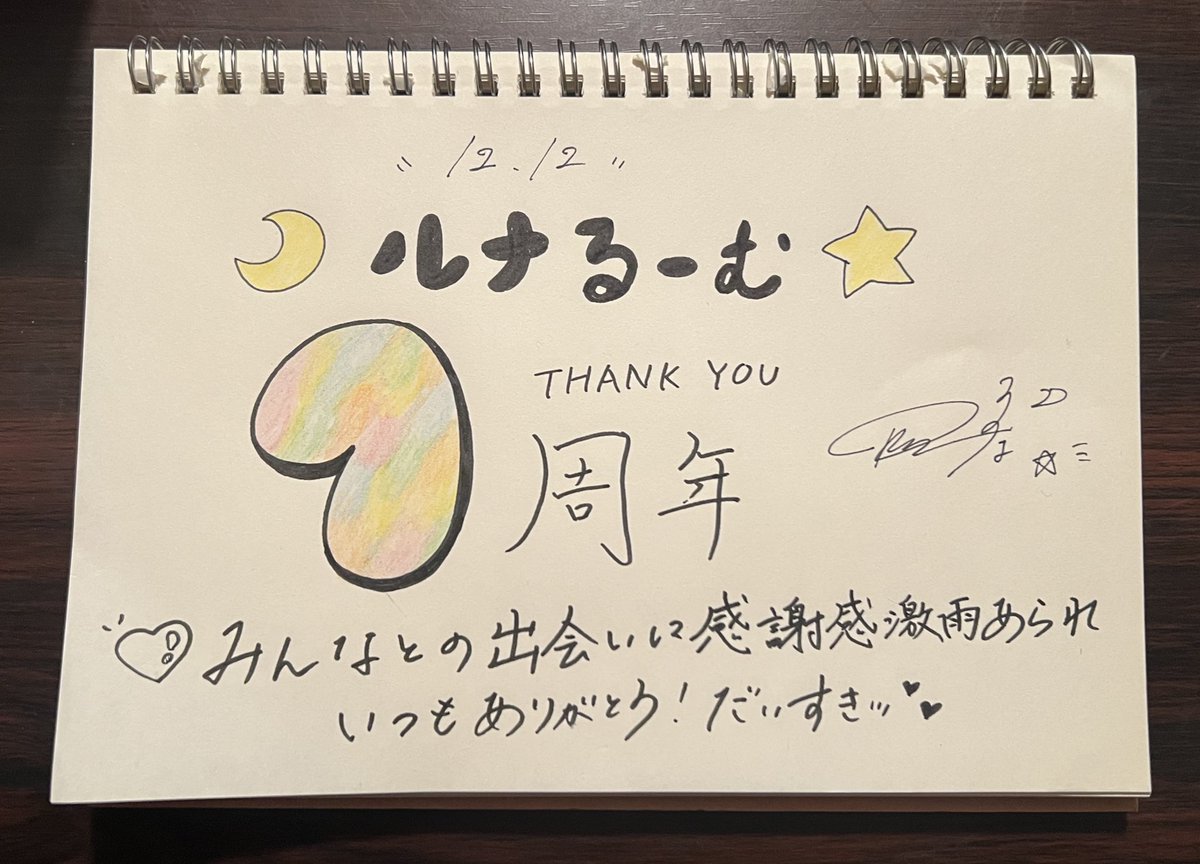 12.12
ルナるーむ
7
THANK YOU
周年
みんなとの出会いに感謝感激雨あられ
いつもありがとう!だいすきッ